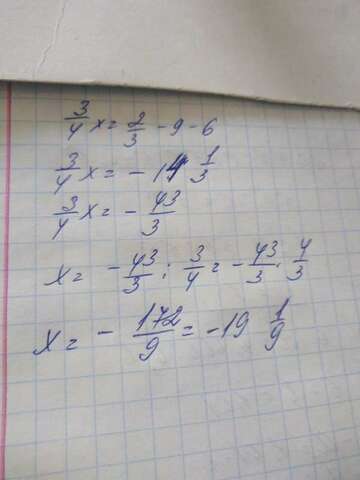 3/4 x = 2/3 - 9 - 6
3/4 x = - 14 1/3
3/4 x = - 43/3
x = - 43/3 : 3/4 = - 43/3 · 4/3
x = - 172/9 = -19 1/9